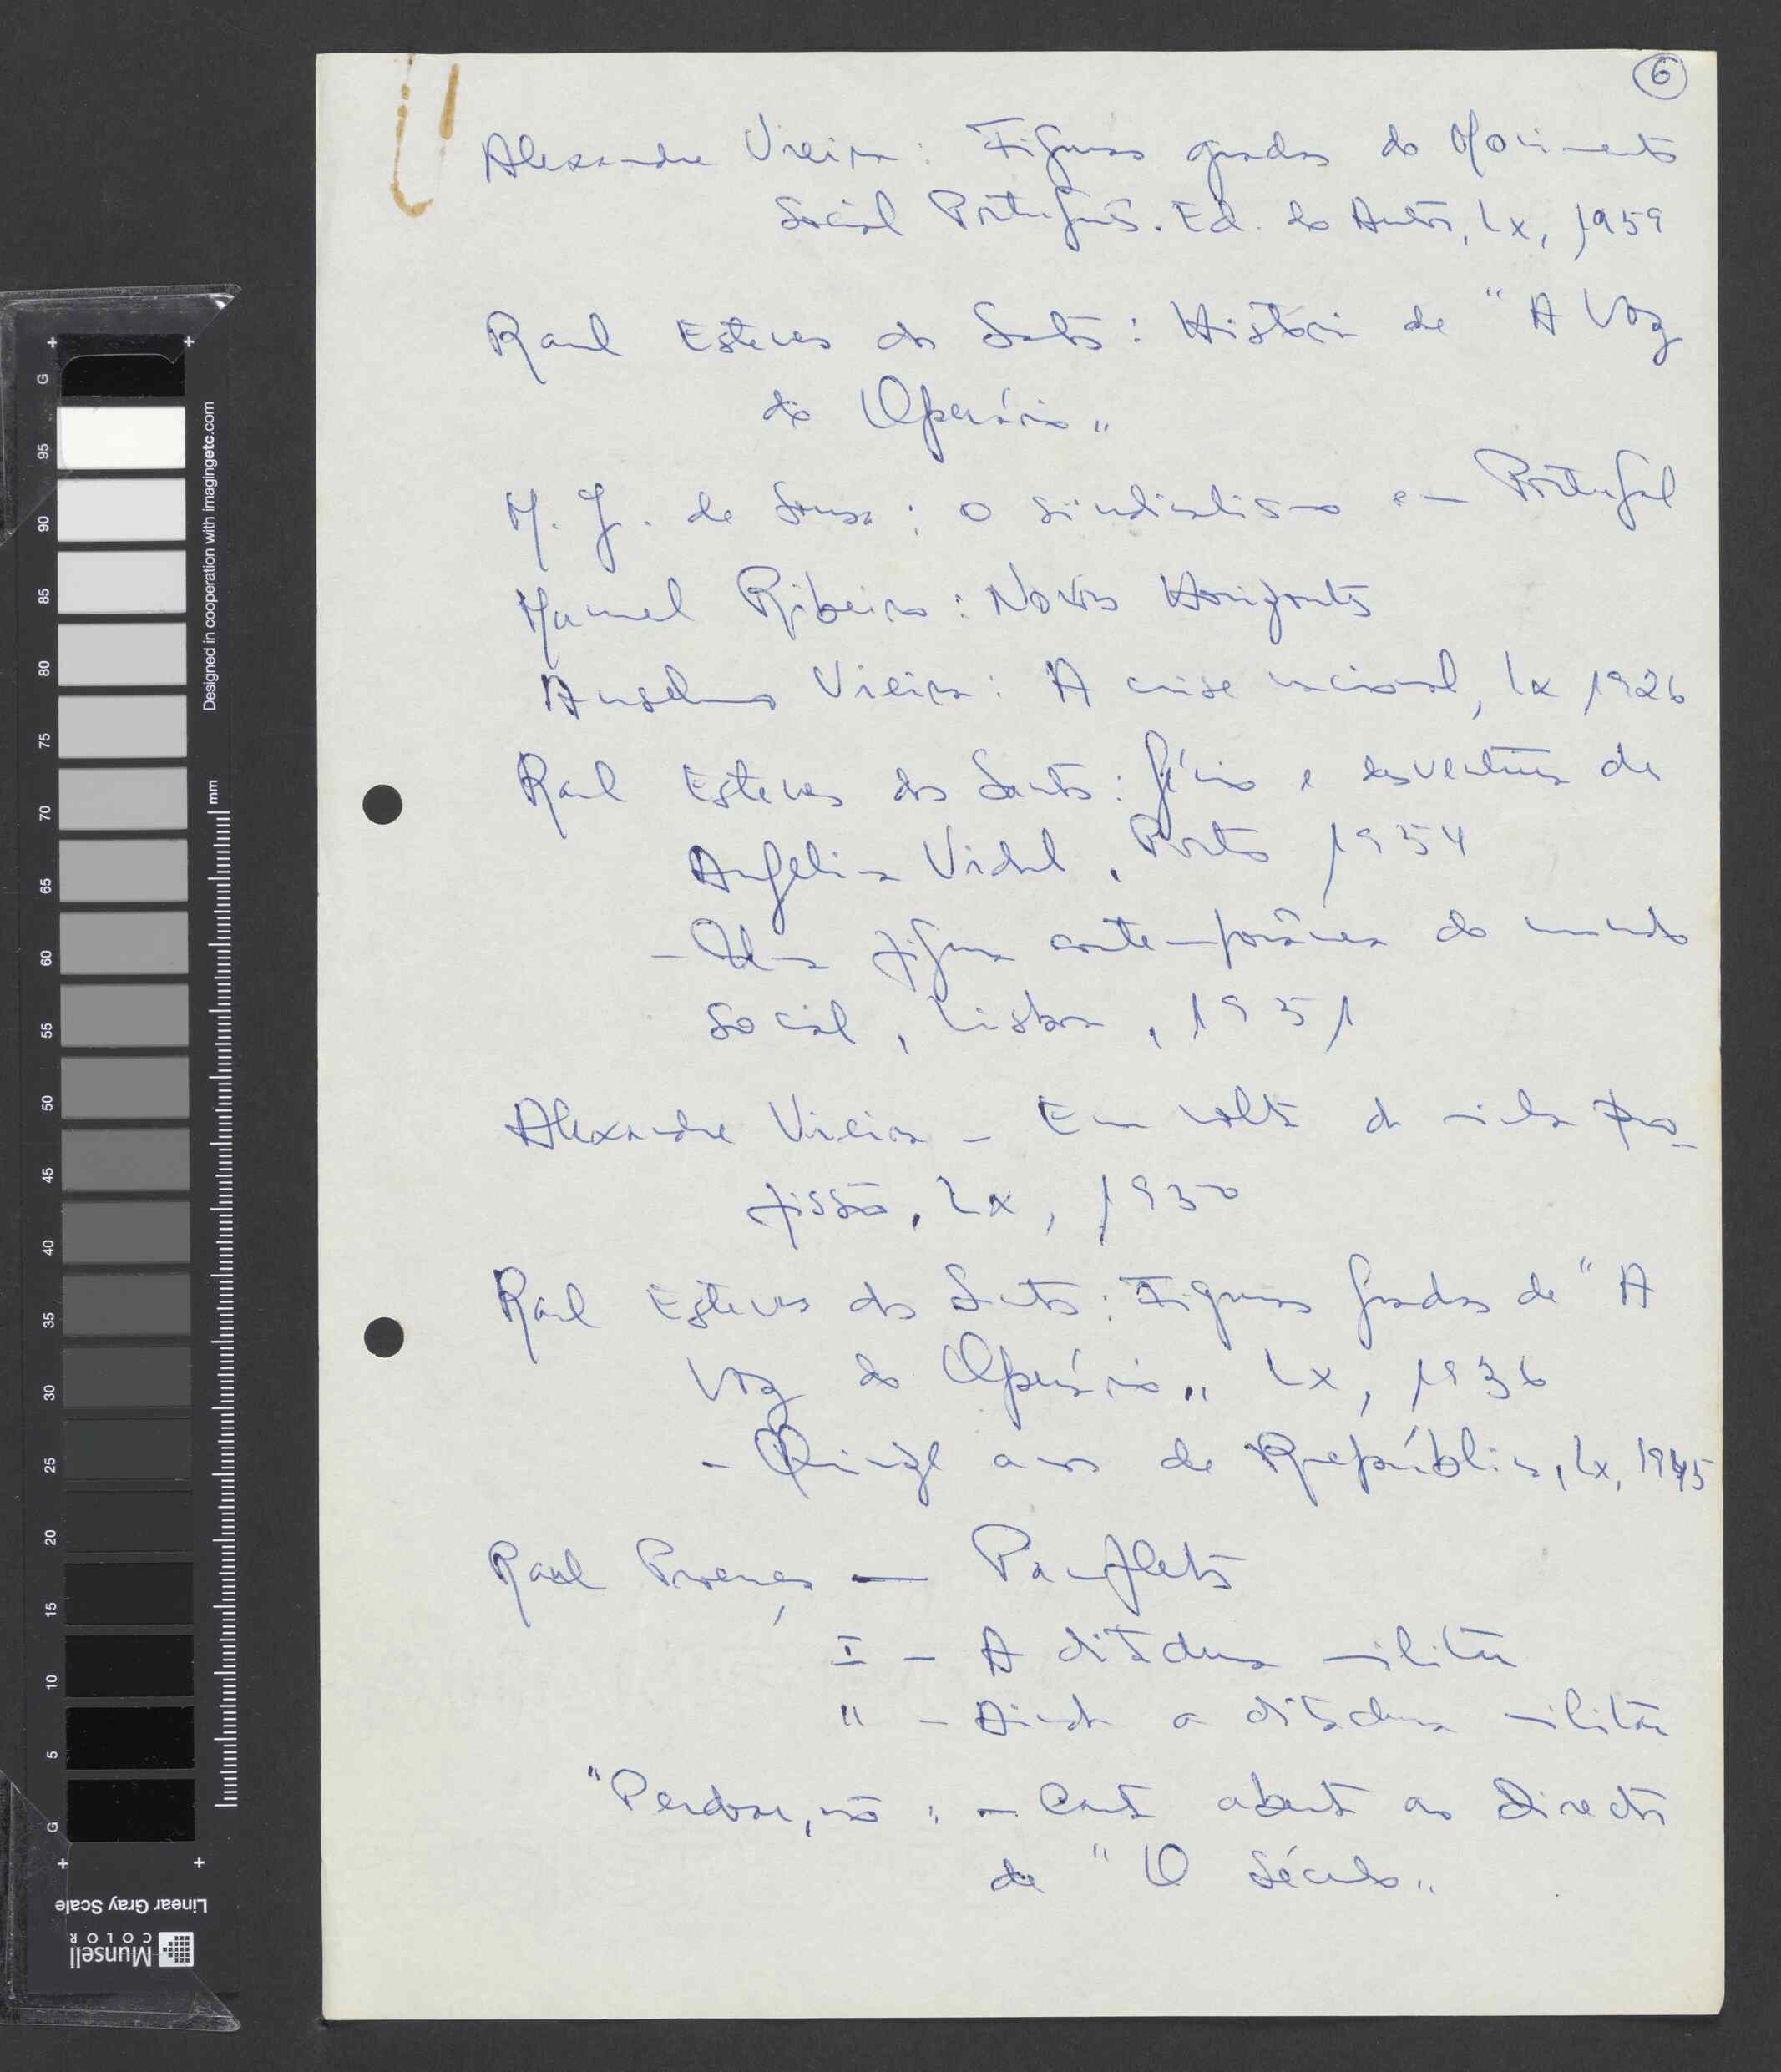 6
Alexandre Vieira: Figuras gradas do Movimento
Social Português. Ed. do Autor, Lx, 1959
Raul Esteves dos Santos: História de "A Voz
do Operário"
M. J. de Sousa: O sindicalismo em Portugal
Manuel Ribeiro: Novos Horizontes
Anselmo Vieira: A crise nacional, Lx 1926
Raul Esteves dos Santos: Génio e desventura de
Angelina Vidal, Porto 1954
- Uma figura contemporânea do mundo
social, Lisboa, 1951
Alexandre Vieira - Em volta da minha pro-
fissão, Lx, 1950
Raul Esteves dos Santos: Figuras Gradas de "A
Voz do Operário" Lx, 1936
- Quinze anos de República, Lx, 1945
Raul Proença — Panfletos
I - A ditadura militar
" - Ainda a ditadura militar
"Perdoar, não: - Carta aberta ao Director
de "O Século"
+ +
G 95 90 85 80 75 70 65 60 55 50 45 40 35 30 25 20 15 10 5 G
Designed in cooperation with imagingetc.com
mm
+ +
Linear Gray Scale
Munsell
COLOR